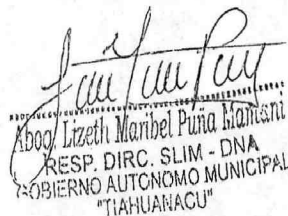 Abog. Lizeth Maribel Puña Mamani
RESP. DIRC. SLIM - DNA
GOBIERNO AUTONOMO MUNICIPAL
"TIAHUANACU"